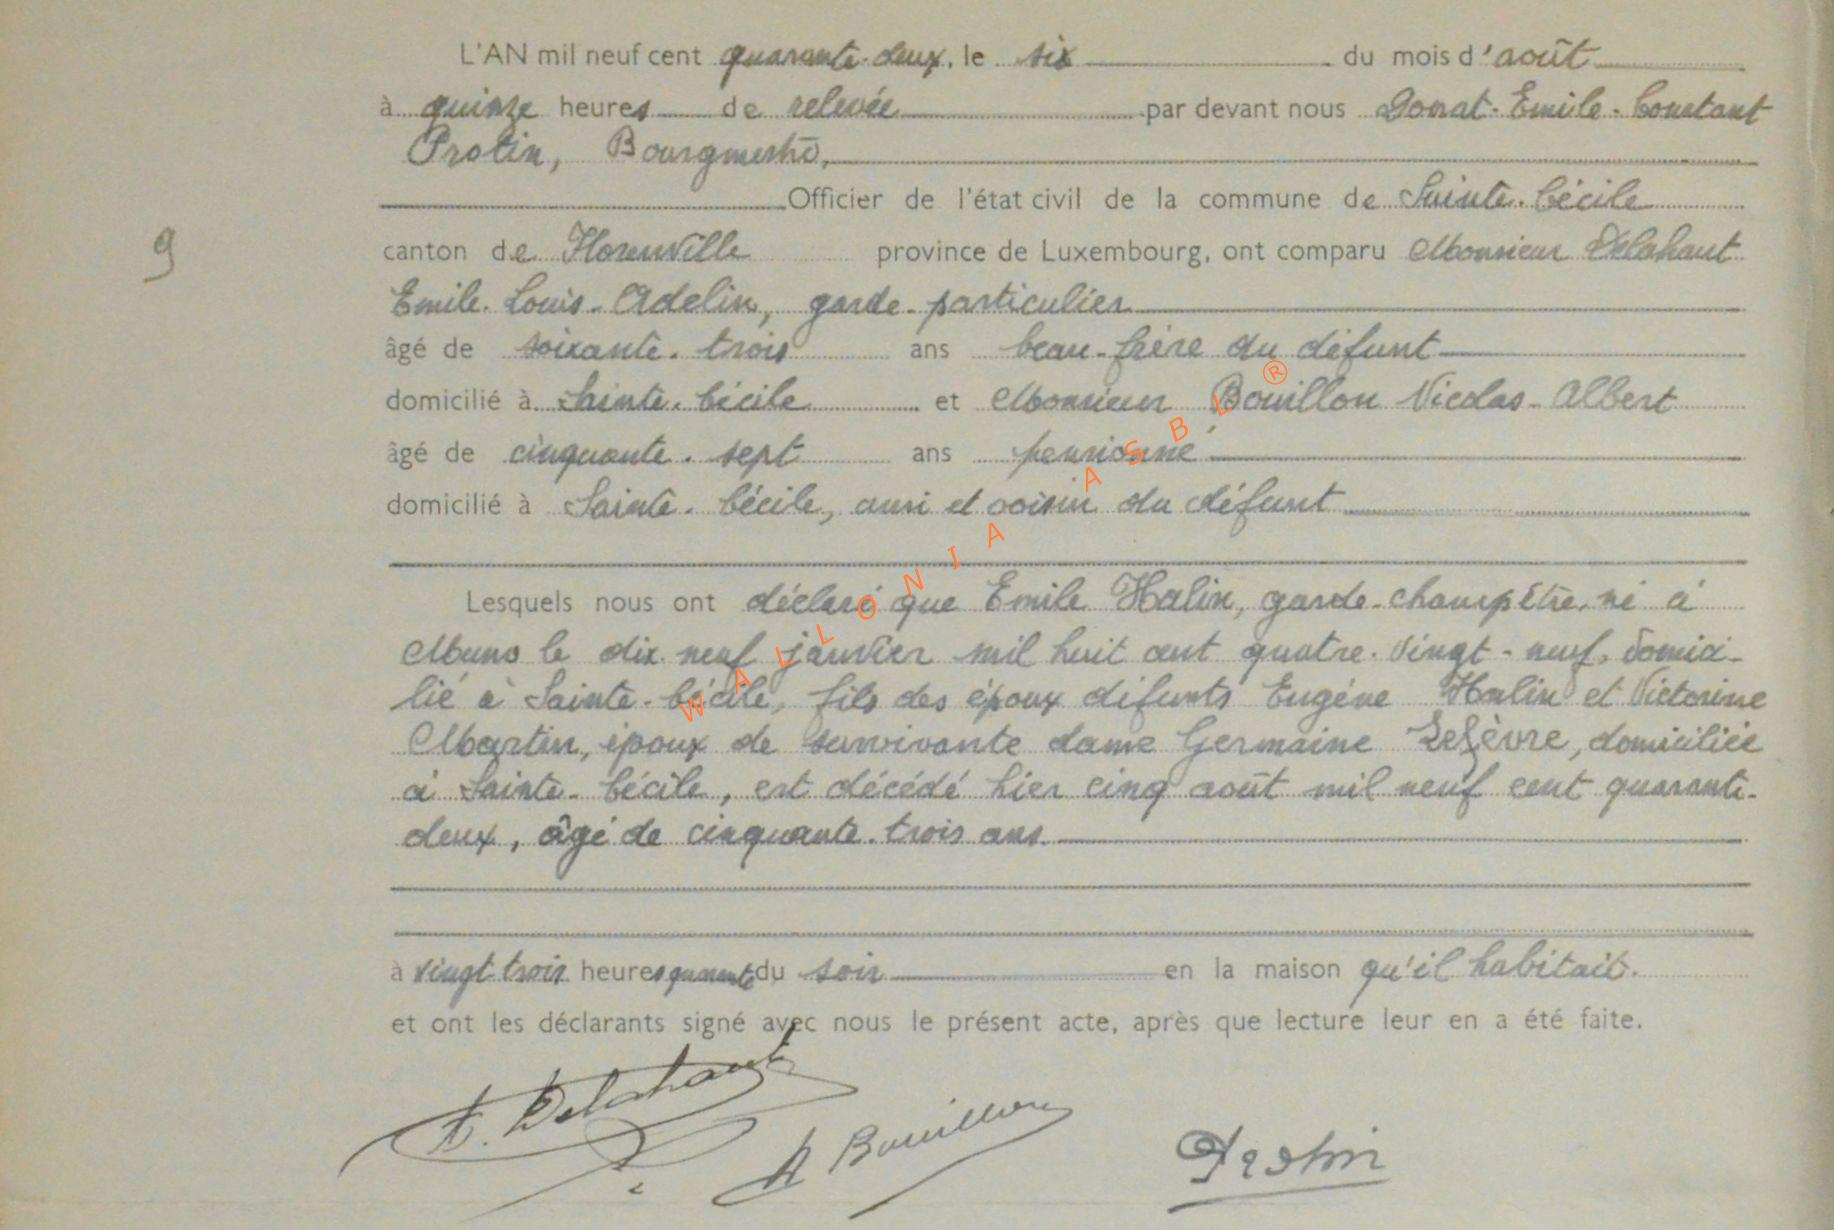 L'AN mil neuf cent quarante-deux, le six du mois d'août
à quinze heures de relevée par devant nous Donat-Emile-Constant
Protin, Bourgmestre,
Officier de l'état civil de la commune de Sainte-Cécile
9
canton de Florenville province de Luxembourg, ont comparu Monsieur Delahaut
Emile-Louis-Adelin, garde-particulier
âgé de soixante-trois ans beau-frère du défunt
domicilié à Sainte-Cécile et Monsieur Bouillon Nicolas-Albert
âgé de cinquante-sept ans pensionné
domicilié à Sainte-Cécile, ami et voisin du défunt
Lesquels nous ont déclaré que Emile Halin, garde-champêtre, né à
Muno le dix-neuf janvier mil huit cent quatre-vingt-neuf, domici-
lié à Sainte-Cécile, fils des époux défunts Eugène Halin et Victorine
Martin, époux de survivante dame Germaine Lefèvre, domiciliée
à Sainte-Cécile, est décédé hier cinq août mil neuf cent quarante-
deux, âgé de cinquante-trois ans.
à vingt trois heures quarante du soir en la maison qu'il habitait.
et ont les déclarants signé avec nous le présent acte, après que lecture leur en a été faite.
E. Delahaut
A Bouillon
Protin
WALLONIA ASBL ®